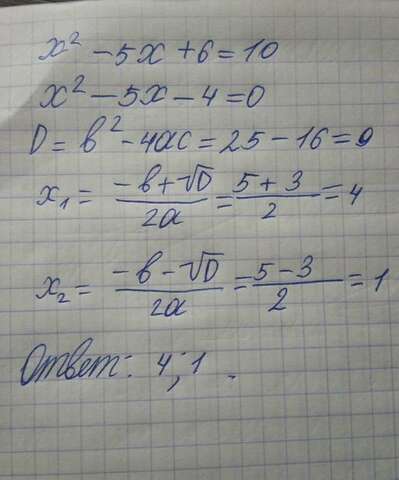 x² - 5x + 6 = 10
x² - 5x - 4 = 0
D = b² - 4ac = 25 - 16 = 9
x₁ = (-b + √D)/2a = (5 + 3)/2 = 4
x₂ = (-b - √D)/2a = (5 - 3)/2 = 1
Ответ: 4; 1.